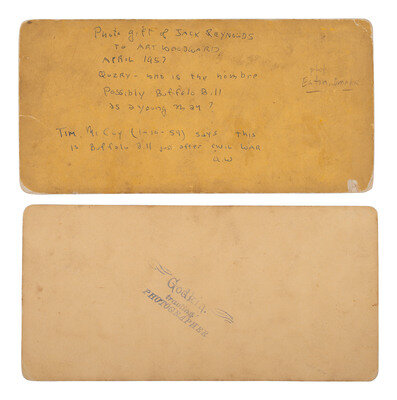 Photo gift of JACK REYNOLDS
TO ART WOODWARD
APRIL 1957
QUERY - who is the hombre
Possibly Buffalo Bill
as a young man?
TIM McCoy (1-12-59) says this
is Buffalo Bill just after CIVIL WAR
A.W
Traveling
PHOTOGRAPHER